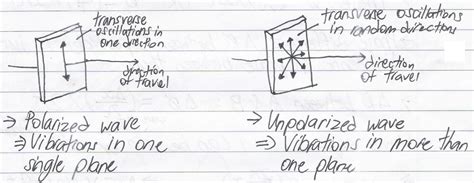 transverse
oscillations in
one direction
direction
of travel
⇒ Polarized wave
⇒ Vibrations in one
single plane
transverse oscillations
in random directions
direction
of travel
⇒ Unpolarized wave
⇒ Vibrations in more than
one plane